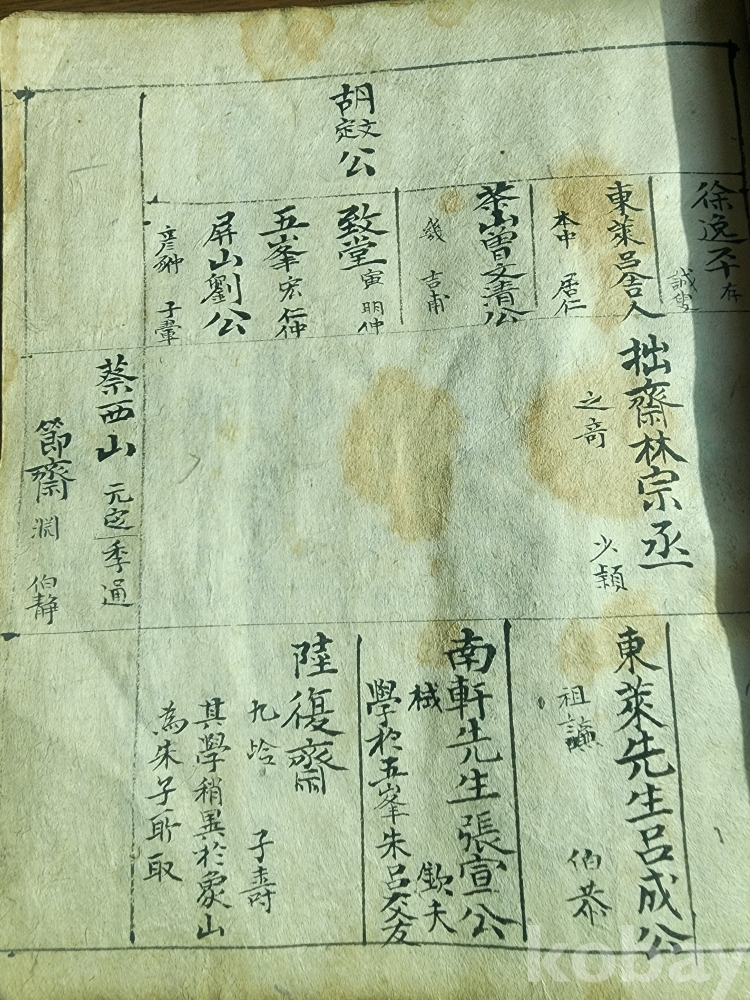 胡文定公
徐逸平 存
誠叟
東萊呂舍人
本中 居仁
茶山曾文清公
幾 吉甫
致堂 寅 明仲
五峯 宏 仁仲
屏山劉公
彦冲 子翬
拙齋林宗丞
之奇 少穎
蔡西山 元定 季通
節齋 淵 伯静
東萊先生呂成公
祖謙 伯恭
南軒先生張宣公
栻 欽夫
學於五峯朱呂交友
陸復齋
九 子壽
其學稍異於象山
為朱子所取
kobay